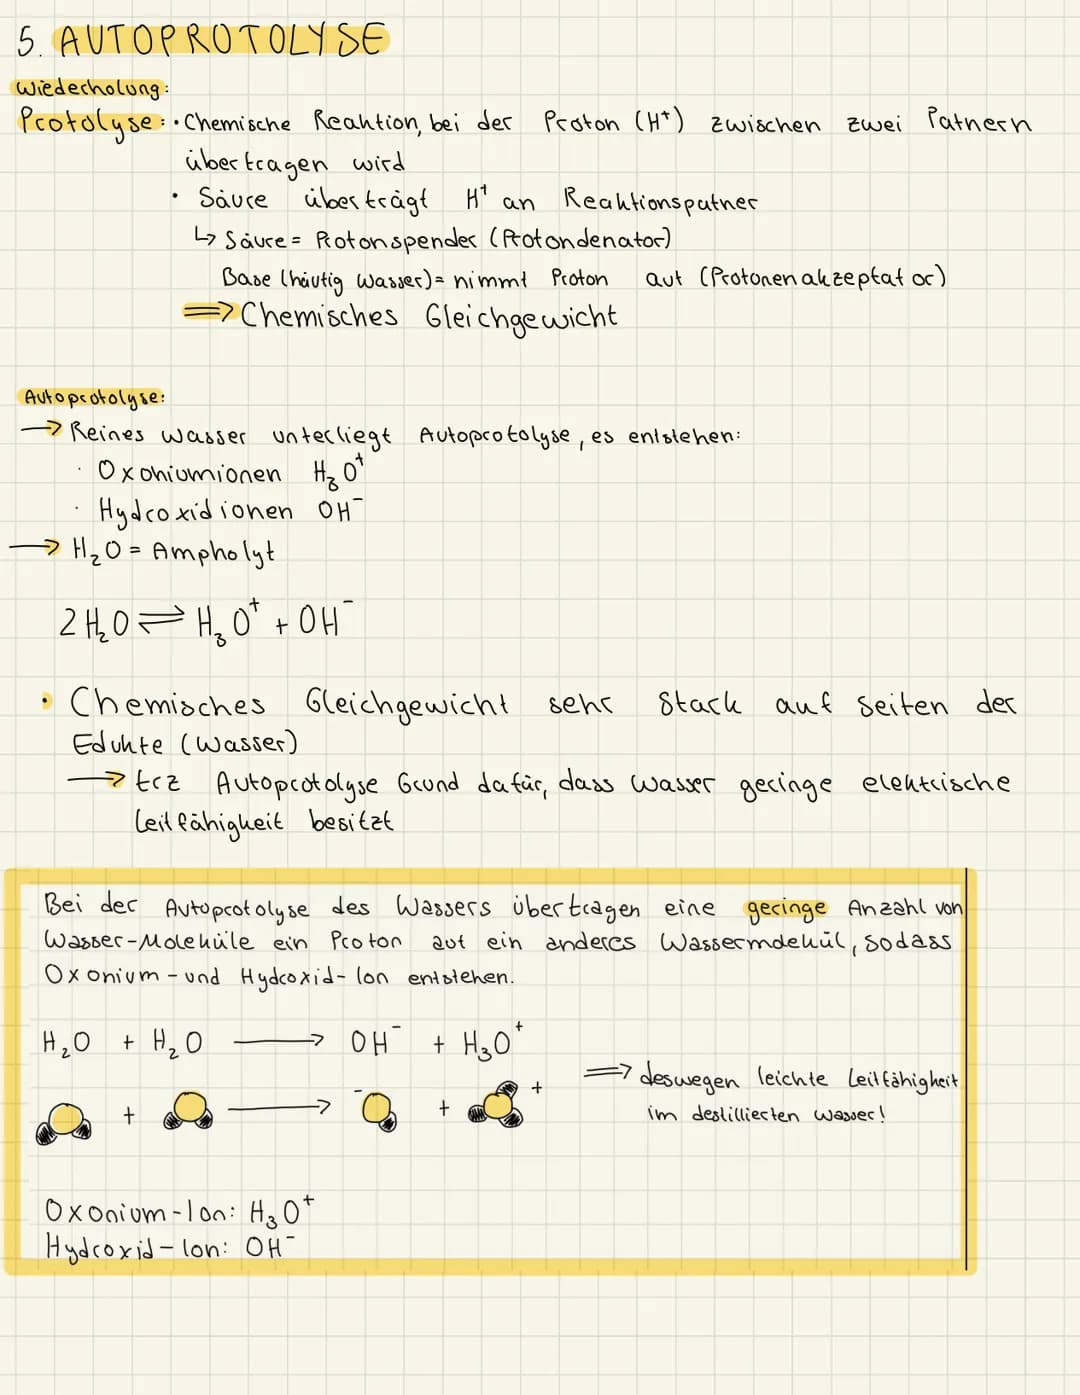 5. AUTOPROTOLYSE
Wiederholung:
Protolyse: • Chemische Reaktion, bei der Proton (H⁺) zwischen zwei Patnern
übertragen wird
• Säure überträgt H⁺ an Reaktionspatner
↳ Säure = Protonspender (Protondenator)
Base (häufig Wasser) = nimmt Proton auf (Protonenakzeptator)
⇒ Chemisches Gleichgewicht
Autoprotolyse:
→ Reines Wasser unterliegt Autoprotolyse, es entstehen:
· Oxoniumionen H₃O⁺
· Hydroxidionen OH⁻
→ H₂O = Ampholyt
2 H₂O ⇌ H₃O⁺ + OH⁻
• Chemisches Gleichgewicht sehr stark auf Seiten der
Edukte (Wasser)
→ trz Autoprotolyse Grund dafür, dass Wasser geringe elektrische
Leitfähigkeit besitzt
Bei der Autoprotolyse des Wassers übertragen eine geringe Anzahl von
Wasser-Moleküle ein Proton auf ein anderes Wassermolekül, sodass
Oxonium- und Hydroxid-Ion entstehen.
H₂O + H₂O → OH⁻ + H₃O⁺
⇒ deswegen leichte Leitfähigkeit
+ → ⁻ + +
im destillierten Wasser!
Oxonium-Ion: H₃O⁺
Hydroxid-Ion: OH⁻